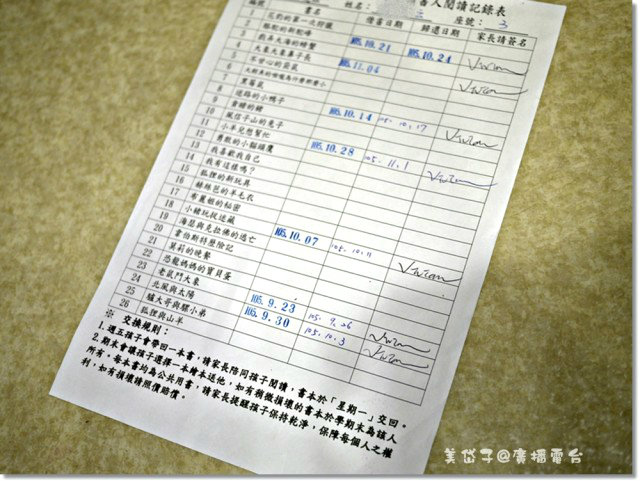 姓名：
個人閱讀記錄表
座號： 3
書名 借書日期 歸還日期 家長請簽名
駱駝的新駝峰
105.10.21 105.10.24 Vivian
4 大象大象鼻子長
5 105.11.04 Vivian
6
7
8 迷路的小鴨子 105.10.14 105.10.17 Vivian
9 貪睡的豬
10 風信子山的兔子
11 小羊兒想幫忙 105.10.28 105.11.1 Vivian
12 勇敢的小貓頭鷹
13 我喜歡我自己
14 我有這樣嗎？
15 狐狸的新玩具
16 赫絲芭的羊毛衣
17 布麗姐的秘密
18 小豬玩捉迷藏 105.10.07 105.10.11 Vivian
19 海瑟與克拉佛的逃亡
20 韋伯斯特歷險記
21 莫莉的晚餐
22 恐龍媽媽的寶貝蛋
23 老鼠鬥大象
24 北風與太陽 105.9.23 105.9.26 Vivian
25 驢大哥與騾小弟 105.9.30 105.10.3 Vivian
26 狐狸與山羊
※ 交換規則：
1.週五孩子會帶回一本書，請家長陪同孩子閱讀，書本於「星期一」交回。
2.期末會讓孩子選擇一本繪本送他，如有稍微損壞的書本於學期末為該人
所有。每本書均為公共用書，請家長提醒孩子保持乾淨，保障每個人之權
利，如有損壞請照價賠償。
美岱子@廣播電台